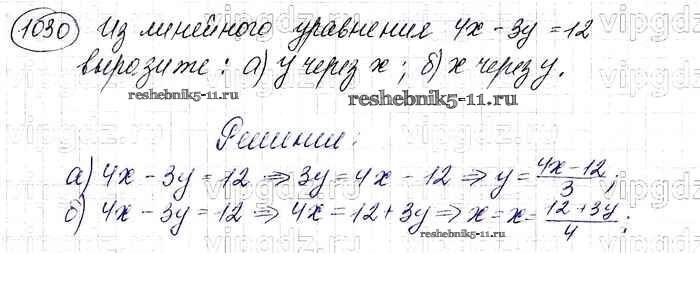 1030 Из линейного уравнения 4x - 3y = 12
выразите: а) y через x; б) x через y.
reshebnik5-11.ru
reshebnik5-11.ru
Решение:
а) 4x - 3y = 12 ⇒ 3y = 4x - 12 ⇒ y = (4x-12)/3;
б) 4x - 3y = 12 ⇒ 4x = 12 + 3y ⇒ x = x = (12+3y)/4;
reshebnik5-11.ru